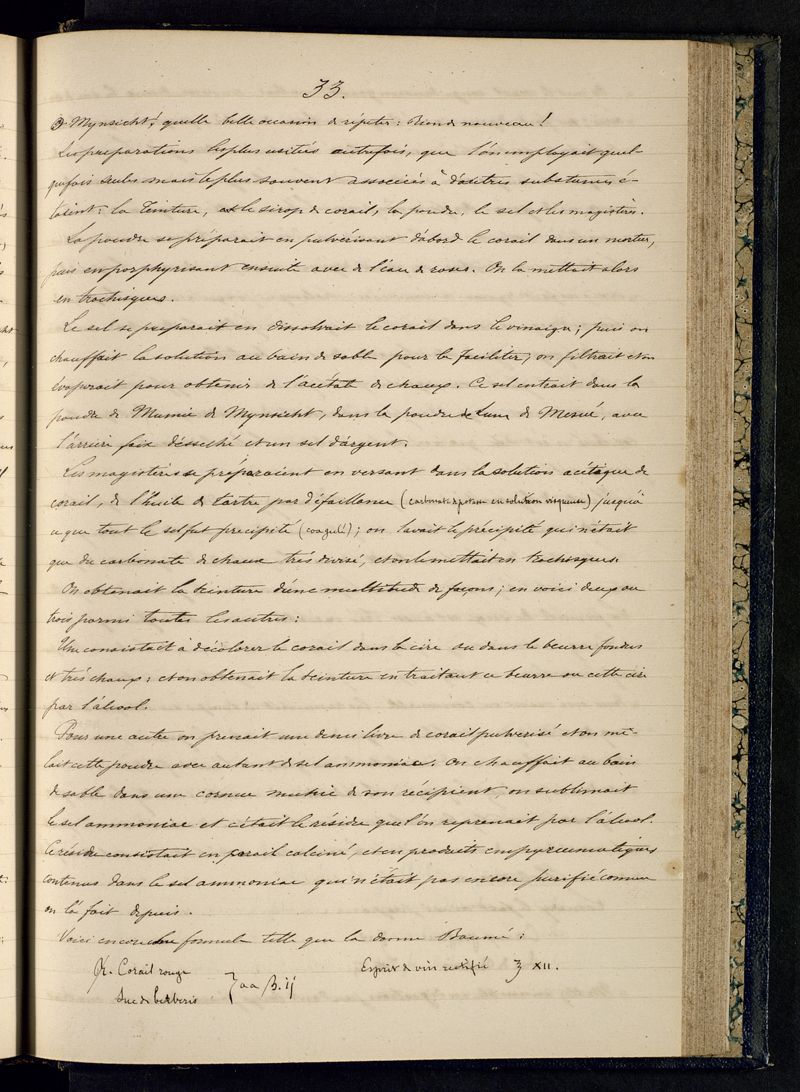 33.
Mynsicht! quelle belle occasion de répéter: Rien de nouveau!
Les préparations les plus usitées autrefois, que l'on employait quel-
quefois seules mais le plus souvent associées à d'autres substances é-
taient: la teinture, le sirop de corail, la poudre, le sel et les magistères.
La poudre se préparait en pulvérisant d'abord le corail dans un mortier,
puis en porphyrisant ensuite avec de l'eau de roses. On la mettait alors
en trochisques.
Le sel se préparait en dissolvait le corail dans le vinaigre; puis on
chauffait la solution au bain de sable pour la faciliter, on filtrait et on
évaporait pour obtenir de l'acétate de chaux. Ce sel entrait dans la
poudre de Mumie de Mynsicht, dans la poudre de Lune de Mesué, avec
l'arrière faix désséché et un sel d'argent.
Les magistères se préparaient en versant dans la solution acétique de
corail, de l'huile de tartre par défaillance (carbonate de potasse en solution visqueuse) jusqu'à
ce que tout le sel fut precipité (coagulé); on lavait le précipité qui n'était
que du carbonate de chaux très divisé, et on le mettait en trochisques.
On obtenait la teinture d'une multitude de façons; en voici deux ou
trois parmi toutes les autres:
Une consistait à décolorer le corail dans la cire ou dans le beurre fondus
et très chaux: et on obtenait la teinture en traitant ce beurre ou cette cire
par l'álcool.
Pour une autre on prenait une demi livre de corail pulverisé et on mê-
lait cette poudre avec autant de sel ammoniac. On chauffait au bain
de sable dans une cornue munie de son récipient, on sublimait
le sel ammoniac et c'était le résidu que l'on reprenait par l'álcool.
Ce résidu consistait en corail calciné, et en produits empyreumatiques
contenus dans le sel ammoniac qui n'était pas encore purifié comme
on l'á fait depuis.
Voici encore une formule telle que la donne Baumé:
R. Corail rouge
Suc de berberis } aa ℥. ij
Esprit de vin rectifié ℥ XII.